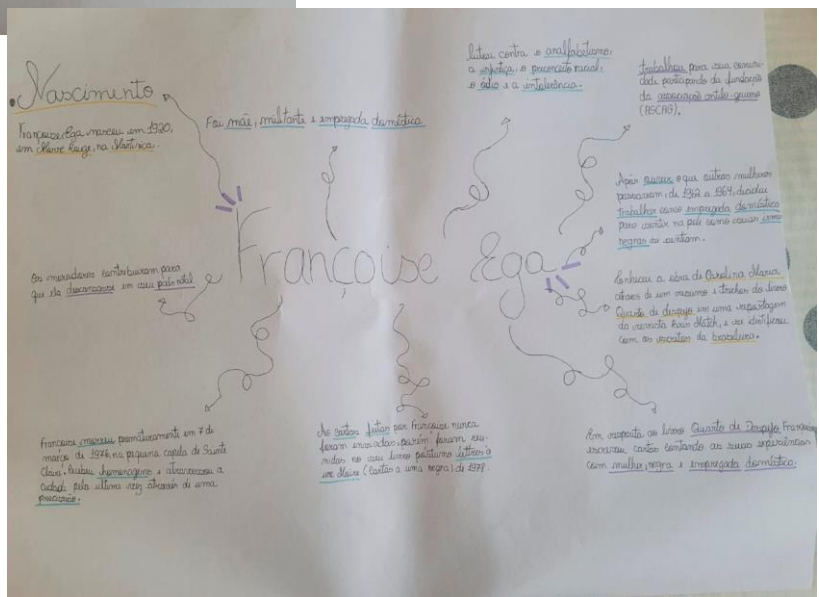 Nascimento
Françoise Ega nasceu em 1920,
em Morne Rouge, na Martinica.
Foi mãe, militante e empregada doméstica
lutou contra o analfabetismo,
a injustiça, o preconceito racial,
o ódio e a intolerância.
trabalhou para sua comuni-
dade participando da fundação
da associação antilo-guiano
(ASCAG).
Françoise Ega
Após ouvir o que outras mulheres
passavam, de 1962 a 1964, decidiu
trabalhar como empregada doméstica
para sentir na pele como suas irmãs
negras se sentiam.
Os moradores contribuíram para
que ela descansasse em seu país natal
Conheceu a obra de Carolina Maria
através de um resumo e trechos do livro
Quarto de despejo em uma reportagem
da revista Paris Match, e se identificou
com os escritos da brasileira.
Françoise morreu prematuramente em 7 de
março de 1976, na pequena capela de Sainte
Claire. Recebeu homenagens e atravessou a
cidade pela última vez através de uma
procissão.
As cartas feitas por Françoise nunca
foram enviadas, porém foram reu-
nidas no seu livro póstumo Lettres à
une Noire (Cartas a uma negra) de 1978.
Em resposta ao livro Quarto de Despejo, Françoise
escreveu cartas contando as suas experiências
com mulher, negra e empregada doméstica.